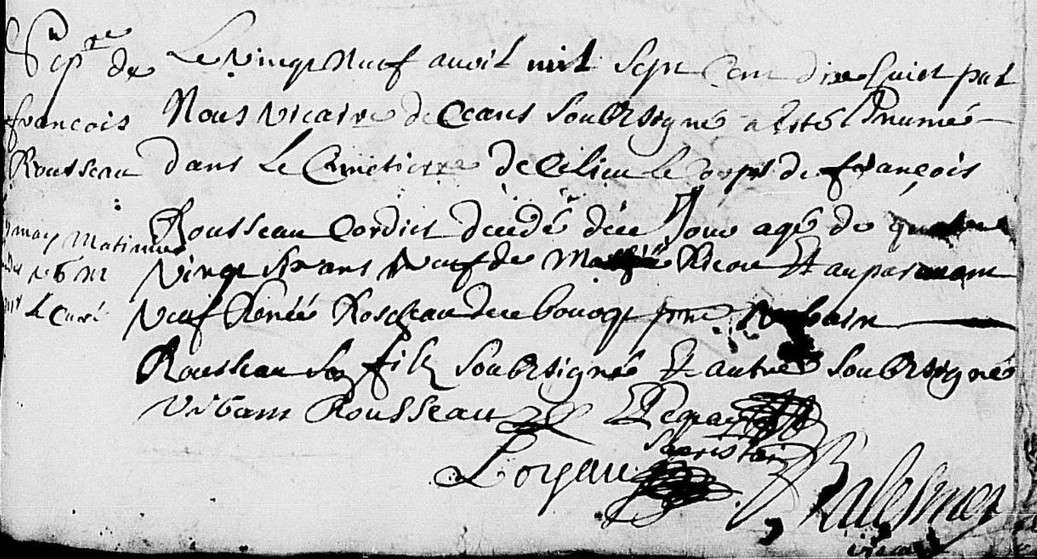 Sep.re de
françois
Rousseau
Le Vingt Neuf avril mil Sept Cent dix huict par
Nous Vicaire de Ceans Soubsigné a esté Inumée
dans Le Cimetierre de Ce lieu le Corps de françois
Rousseau Cordier decedé du Jour agé de quatre
Vingt Six ans Veuf de Ricou Et auparavant
Veuf Renée du bourg pnt Urbain
Rousseau Son fils Soubsigné Et autre Soubsigné
may Matines
Le Curé
Urbain Rousseau
Sacristain
Loyau